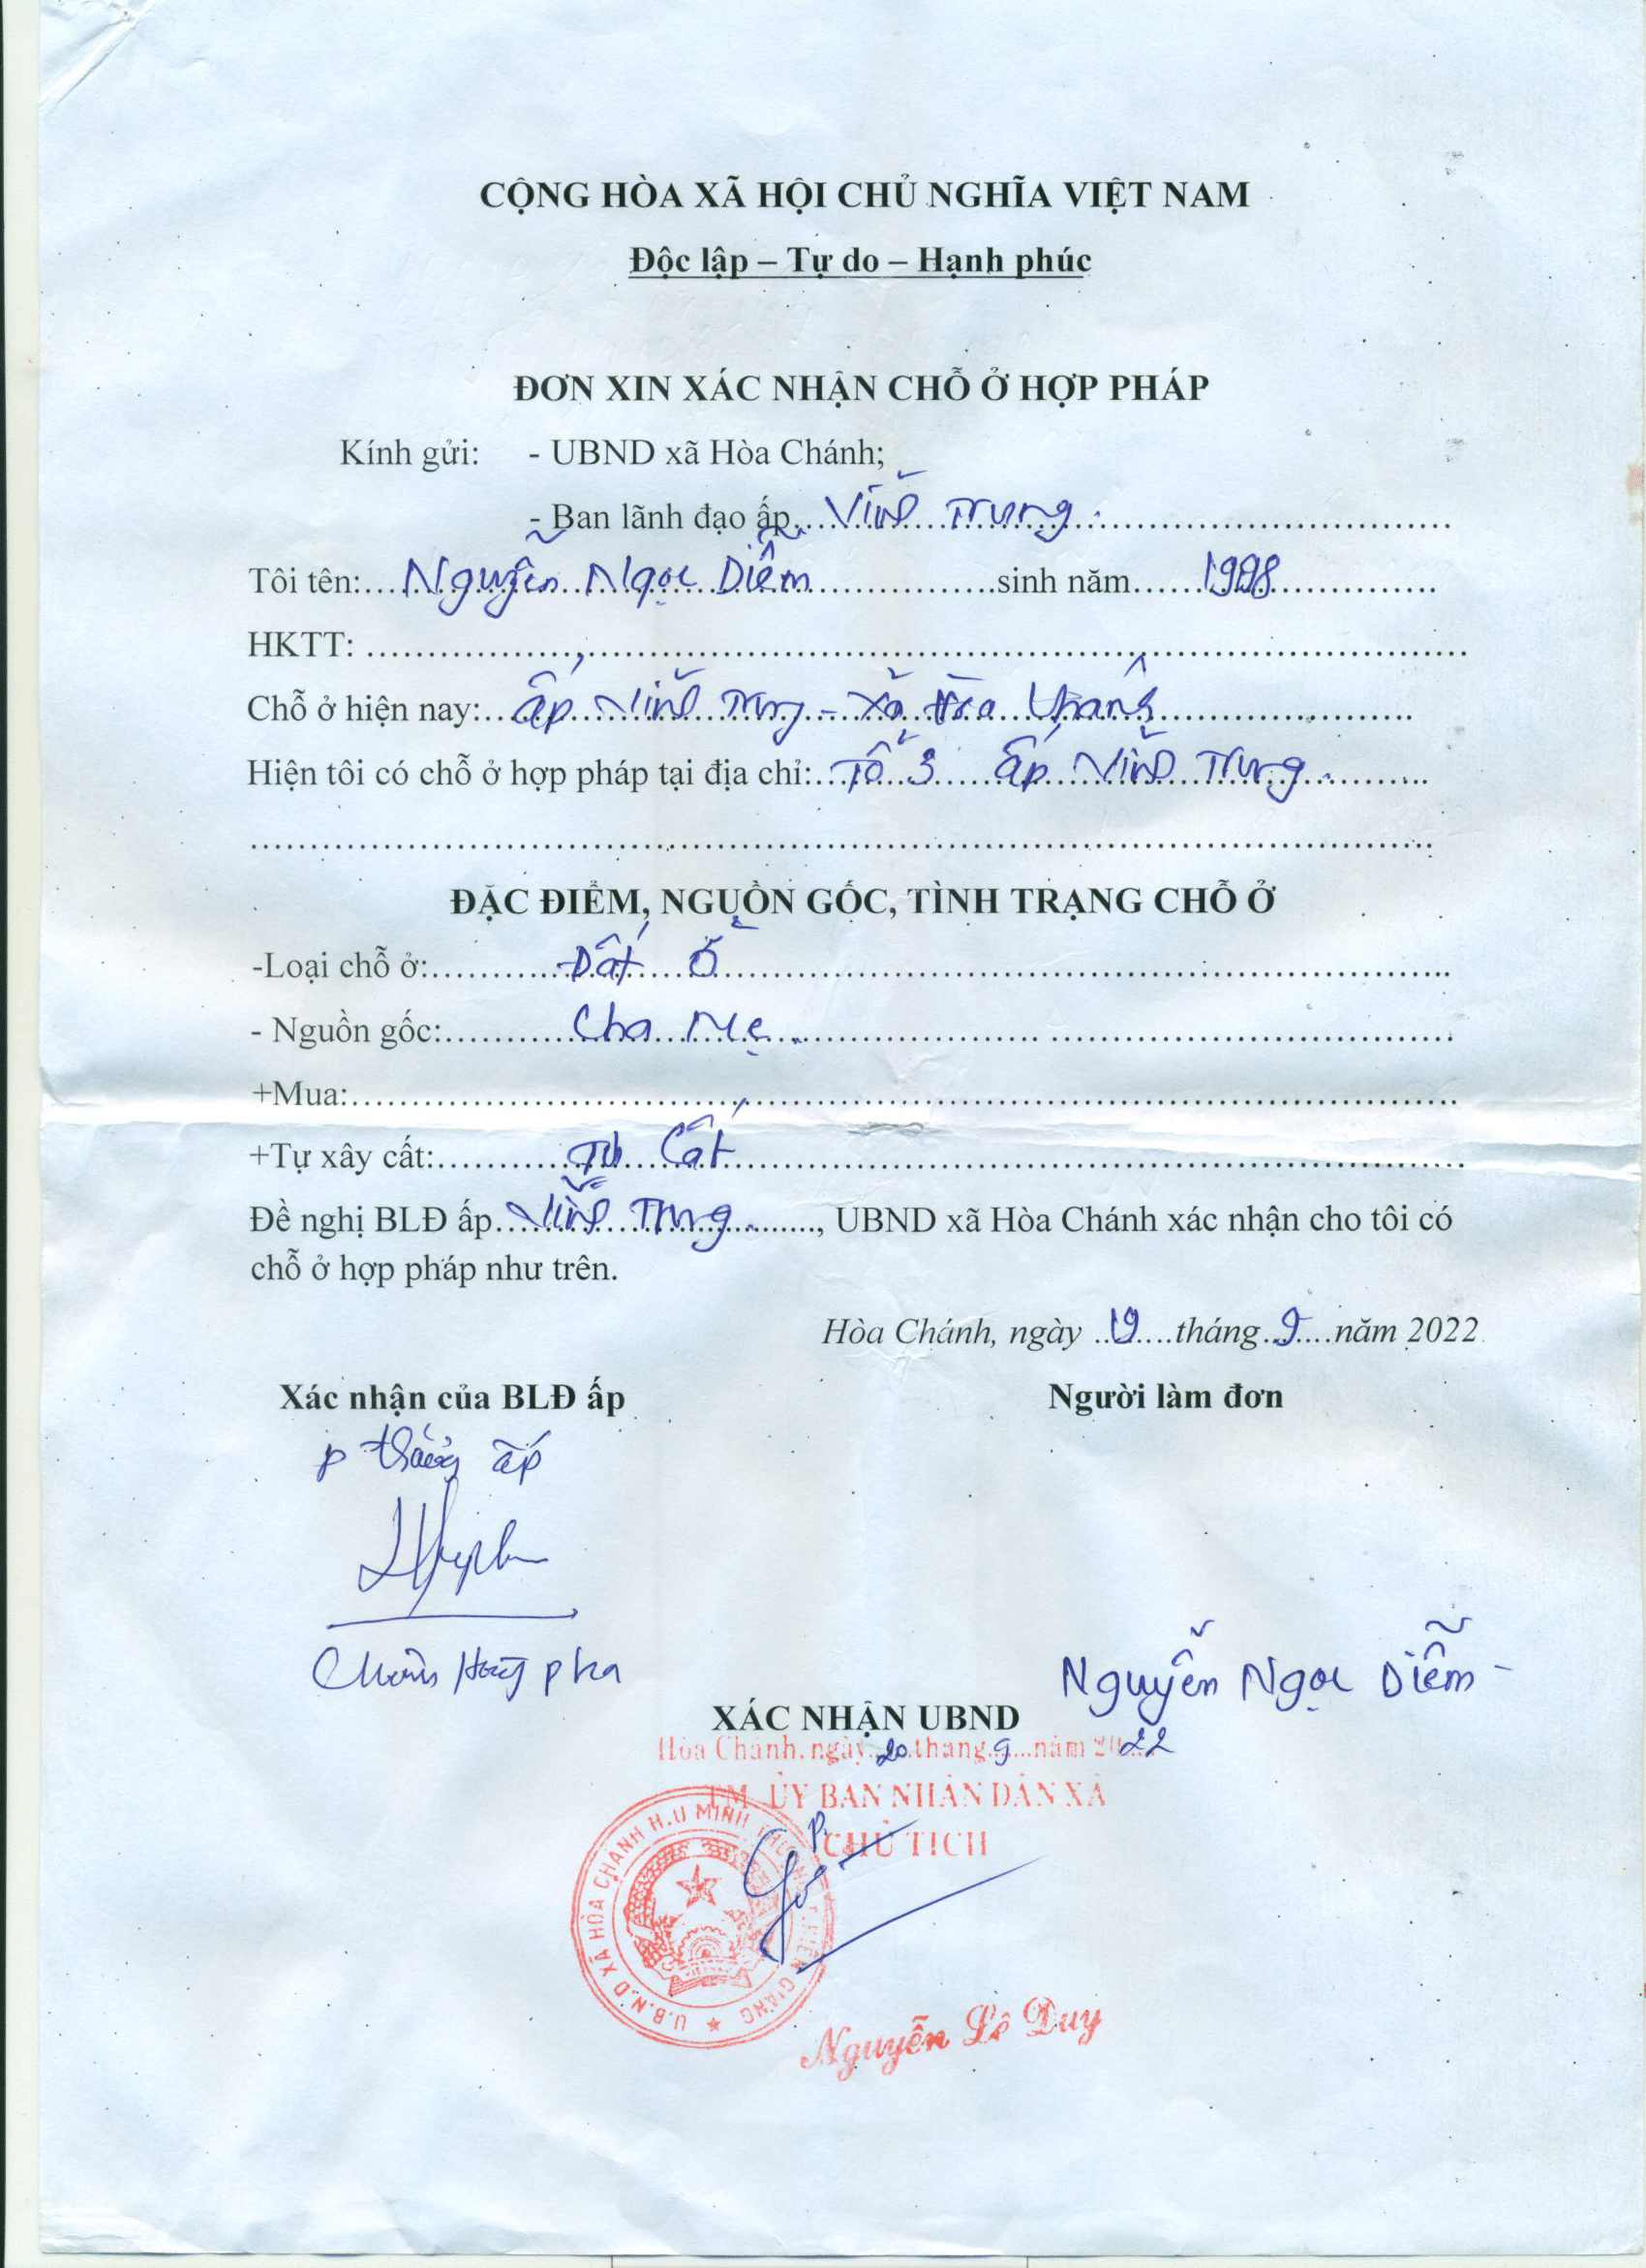 CỘNG HÒA XÃ HỘI CHỦ NGHĨA VIỆT NAM
Độc lập – Tự do – Hạnh phúc
ĐƠN XIN XÁC NHẬN CHỖ Ở HỢP PHÁP
Kính gửi: - UBND xã Hòa Chánh;
- Ban lãnh đạo ấp Vĩnh Trung.
Tôi tên: Nguyễn Ngọc Diễm sinh năm 1998
HKTT:
Chỗ ở hiện nay: ấp Vĩnh Trung - Xã Hòa Chánh
Hiện tôi có chỗ ở hợp pháp tại địa chỉ: Tổ 3 Ấp Vĩnh Trung.
ĐẶC ĐIỂM, NGUỒN GỐC, TÌNH TRẠNG CHỖ Ở
-Loại chỗ ở: Đất ở
- Nguồn gốc: Cha Mẹ.
+Mua:
+Tự xây cất: Tự Cất
Đề nghị BLĐ ấp Vĩnh Trung, UBND xã Hòa Chánh xác nhận cho tôi có
chỗ ở hợp pháp như trên.
Hòa Chánh, ngày 19 tháng 9 năm 2022
Xác nhận của BLĐ ấp Người làm đơn
P trưởng ấp
Nguyễn Ngọc Diễm
XÁC NHẬN UBND
Hòa Chánh, ngày 20 tháng 9 năm 2022
TM. ỦY BAN NHÂN DÂN XÃ
P. CHỦ TỊCH
U.B.N.D XÃ HÒA CHÁNH H.U MINH THƯỢNG T.KIÊN GIANG
Nguyễn Lê Duy